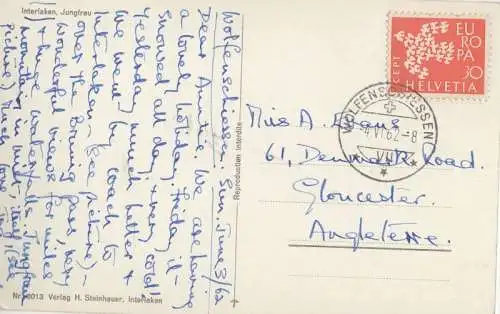 Interlaken, Jungfrau
Wolfenschiessen. Sun. June 3/62
Dear Auntie. We are having
a lovely holiday. Friday it
snowed all day & very cold!
Yesterday much better &
we went by coach to
Interlaken – (see picture) –
over the Brünig pass, very
wonderful views for miles
& huge waterfalls. Jungfrau
mountain in mist, still (see
picture) Much love,
Nr. 6013 Verlag H. Steinhauer, Interlaken
Reproduction interdite
EUROPA
CEPT
30
HELVETIA
WOLFENSCHIESSEN
4.VI.62-8
Miss A. Evans
61, Denmark Road.
Gloucester.
Angleterre.